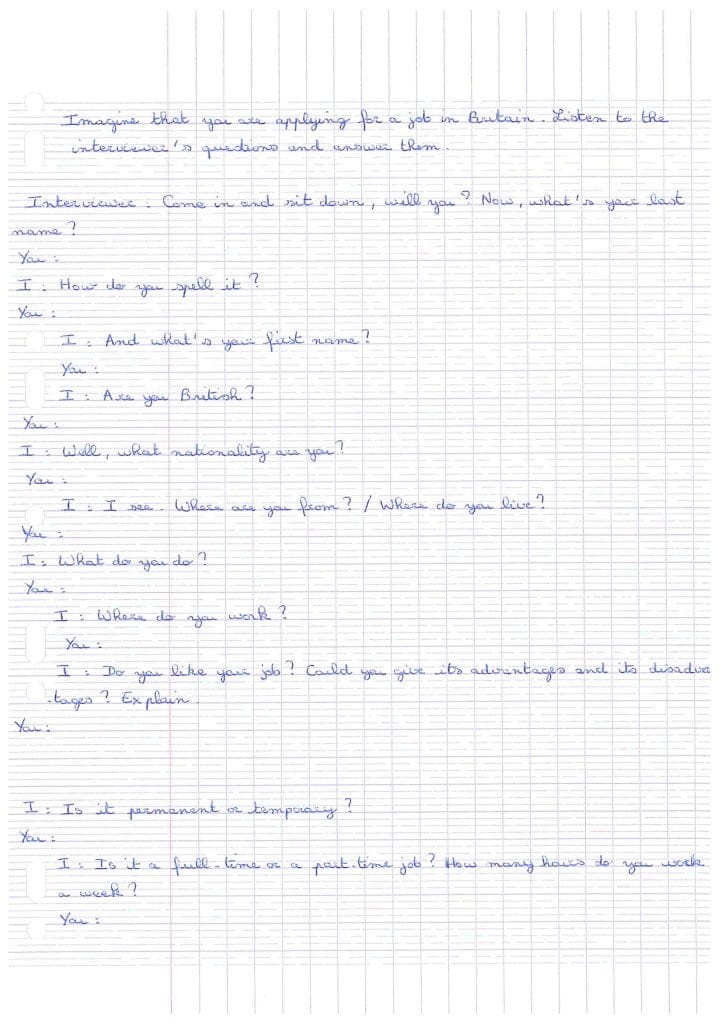 Imagine that you are applying for a job in Britain. Listen to the
interviewer's questions and answer them.
Interviewer : Come in and sit down, will you ? Now, what's your last
name ?
You :
I : How do you spell it ?
You :
I : And what's your first name ?
You :
I : Are you British ?
You :
I : Well, what nationality are you ?
You :
I : I see. Where are you from ? / Where do you live ?
You :
I : What do you do ?
You :
I : Where do you work ?
You :
I : Do you like your job ? Could you give its advantages and its disadva
-tages ? Explain.
You :
I : Is it permanent or temporary ?
You :
I : Is it a full-time or a part-time job ? How many hours do you work
a week ?
You :